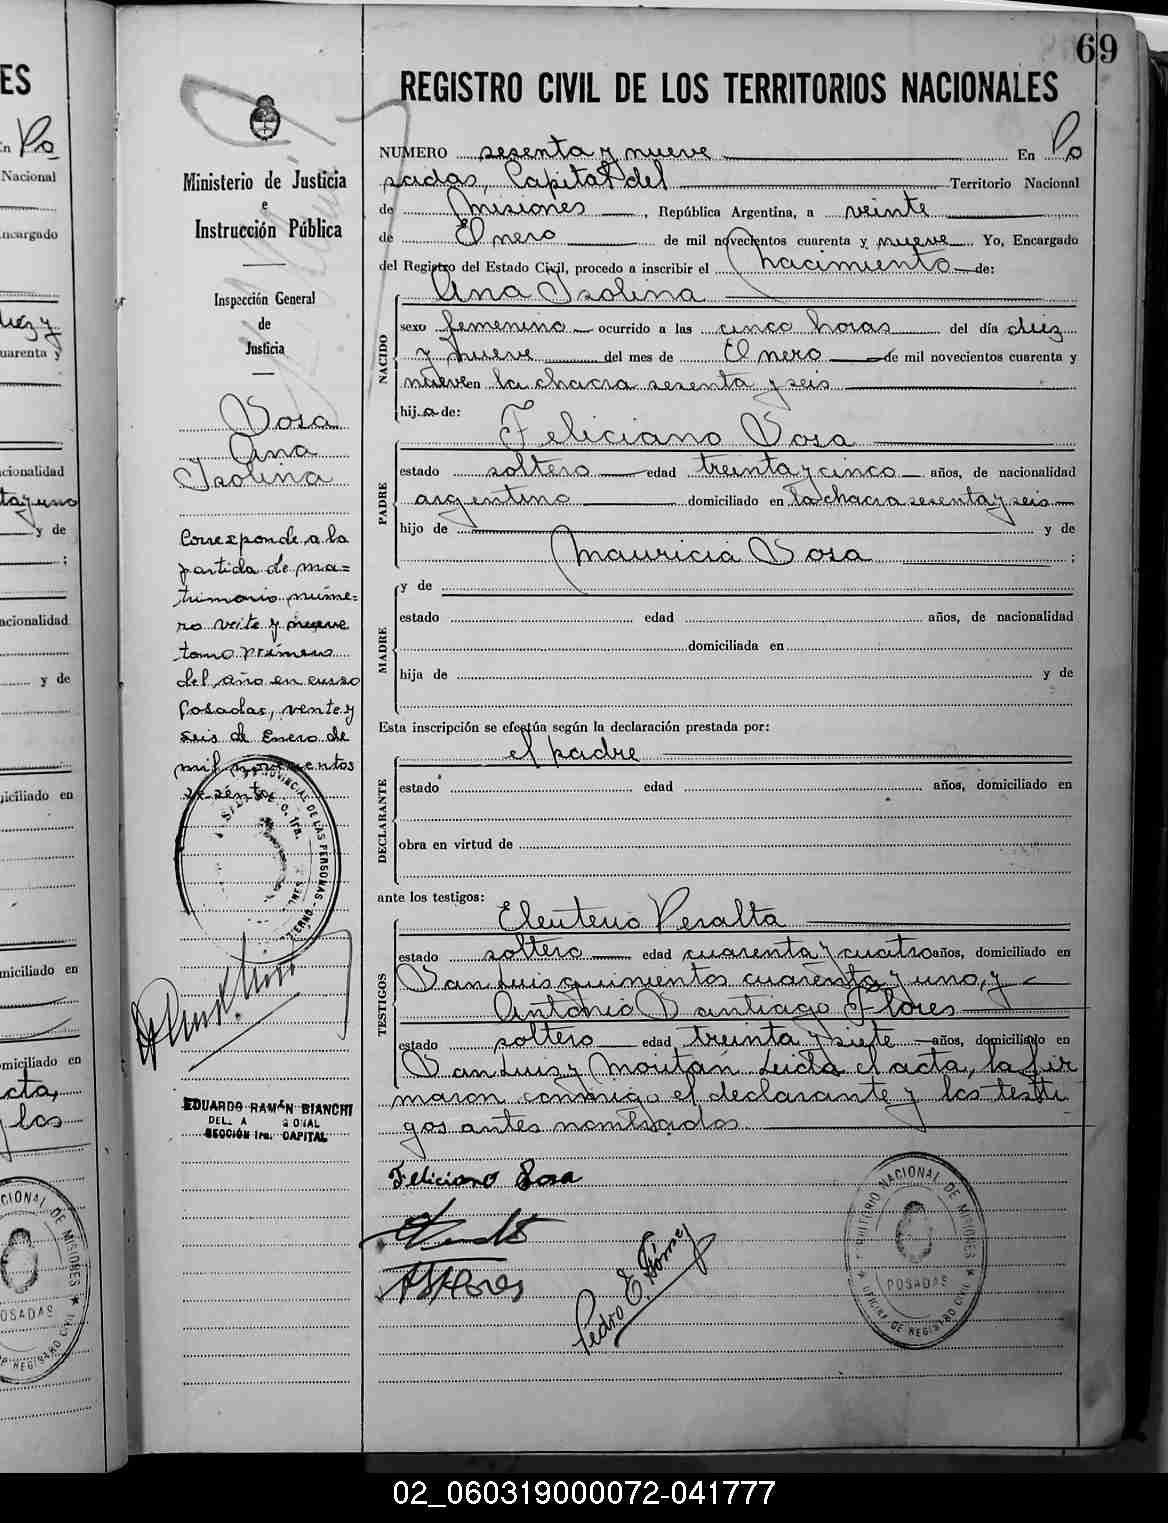 69
REGISTRO CIVIL DE LOS TERRITORIOS NACIONALES
NUMERO sesenta y nueve En Po
sadas, Capital del Territorio Nacional
de Misiones, República Argentina, a veinte
de Enero de mil novecientos cuarenta y nueve Yo, Encargado
del Registro del Estado Civil, procedo a inscribir el Nacimiento de:
Ana Isolina
NACIDO
sexo femenino ocurrido a las cinco horas del día diez
y nueve del mes de Enero de mil novecientos cuarenta y
nueve en la chacra sesenta y seis
hija de:
Feliciano Sosa
PADRE
estado soltero edad treinta y cinco años, de nacionalidad
argentino domiciliado en la chacra sesenta y seis
hijo de y de
Mauricia Sosa ;
MADRE
y de
estado edad años, de nacionalidad
domiciliada en
hija de y de
Esta inscripción se efectúa según la declaración prestada por:
el padre
DECLARANTE
estado edad años, domiciliado en
obra en virtud de
ante los testigos:
Eleuterio Peralta
TESTIGOS
estado soltero edad cuarenta y cuatro años, domiciliado en
San Luis quinientos cuarenta y uno, y
Antonio Santiago Flores
estado soltero edad treinta y siete años, domiciliado en
San Luis y Moritán Leída el acta, la fir
maron conmigo el declarante y los testi
gos antes nombrados
Feliciano Sosa
ASFlores
Pedro E. Gómez
TERRITORIO NACIONAL DE MISIONES
POSADAS
OFICINA DE REGISTRO CIVIL
Ministerio de Justicia
e
Instrucción Pública
Inspección General
de
Justicia
Sosa
Ana
Isolina
Corresponde a la
partida de ma=
trimonio núme=
ro veite y nueve
tomo primero
del año en curso
Posadas, vente y
seis de Enero de
mil novecientos
sesenta
PROVINCIAL DE LAS PERSONAS
EDUARDO RAMÓN BIANCHI
SECCIÓN 1ra. CAPITAL
ES
En Po
Nacional
Encargado
diez y
cuarenta y
nacionalidad
ta y uno
y de
;
nacionalidad
y de
domiciliado en
domiciliado en
domiciliado en
acta,
y los
CIONAL DE MISIONES
POSADAS
DE REGISTRO CIVIL
02_060319000072-041777